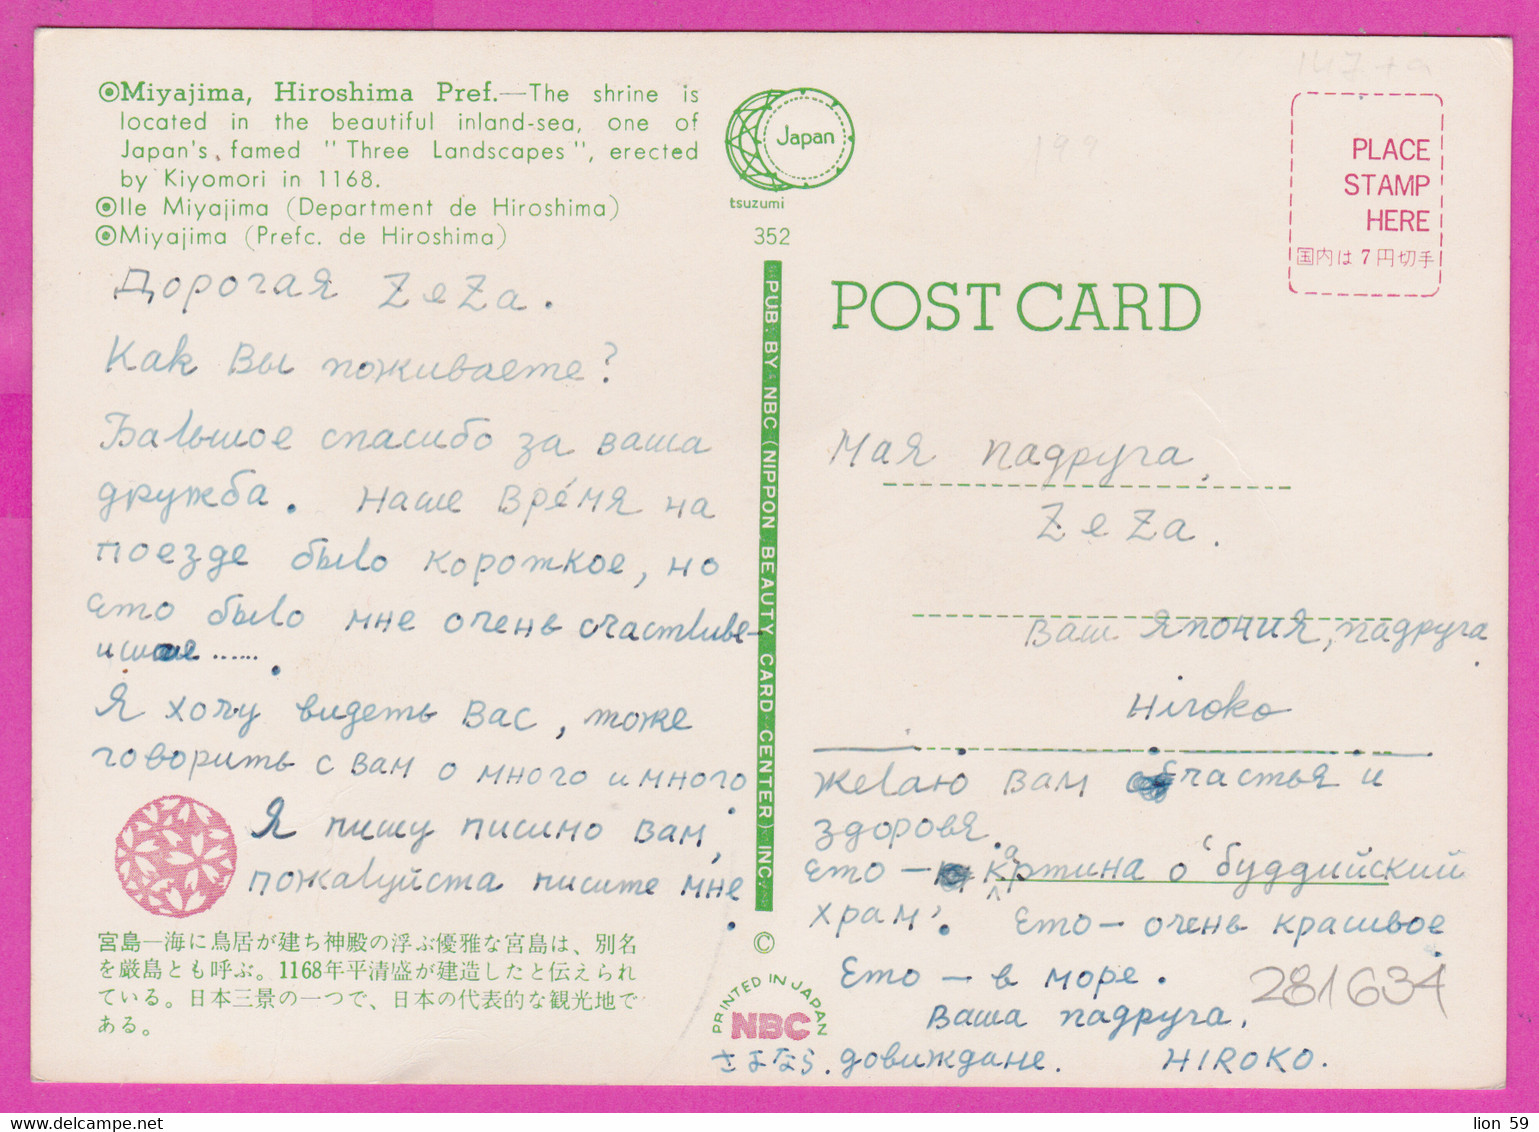 ⦿Miyajima, Hiroshima Pref.—The shrine is
located in the beautiful inland-sea, one of
Japan's famed "Three Landscapes", erected
by Kiyomori in 1168.
⦿Ile Miyajima (Department de Hiroshima)
⦿Miyajima (Prefc. de Hiroshima)
Дорогая ZeZa.
Как Вы поживаете?
Бальшое спасибо за ваша
дружба. Наше Врéмя на
поезде было короткое, но
Ето было мне очень счастливе-
ишое ...... .
Я хочу видеть Вас, тоже
говорить с вам о много и много.
Я пишу писимо вам,
пожалуйста писите мне.
宮島―海に鳥居が建ち神殿の浮ぶ優雅な宮島は、別名
を厳島とも呼ぶ。1168年平清盛が建造したと伝えられ
ている。日本三景の一つで、日本の代表的な観光地で
ある。
Japan
tsuzumi
352
PUB. BY NBC (NIPPON BEAUTY CARD CENTER) INC.
©
PRINTED IN JAPAN
NBC
PLACE
STAMP
HERE
国内は7円切手
POST CARD
Мая падруга,
ZeZa.
Ваш Япония, падруга.
Hiroko
желаю вам счастья и
здоровя.
Ето — картина о "буддийский
храм". Ето — очень красивое.
Ето — в море.
Ваша падруга,
さよなら. довиждане. HIROKO.
281634
199
lion 59